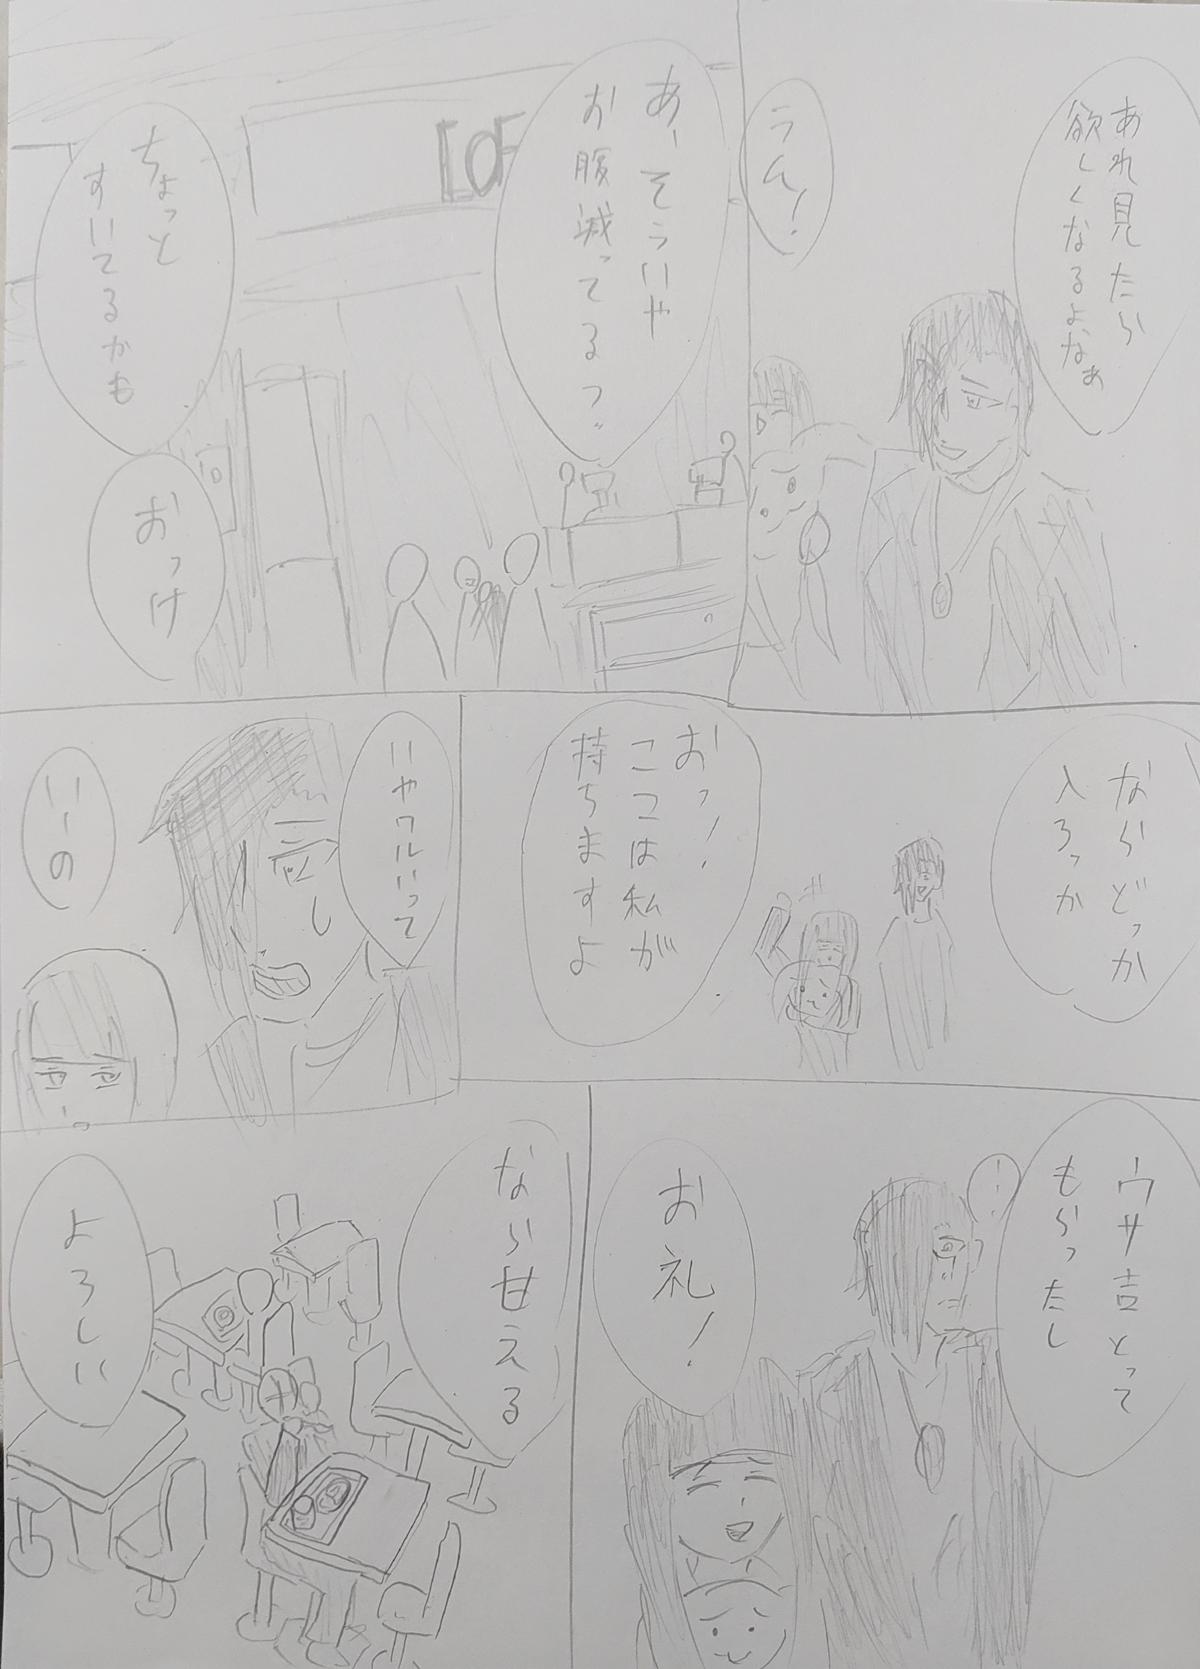 あれ見たら
欲しくなるよなぁ
うん!
あーそういや
お腹減ってるっ?
ちょっと
すいてるかも
おっけ
ならどっか
入ろっか
おっ!
ここは私が
持ちますよ
いやワルいって
いーの
ウサ吉とって
もらったし
お礼!
なら甘える
よろしい